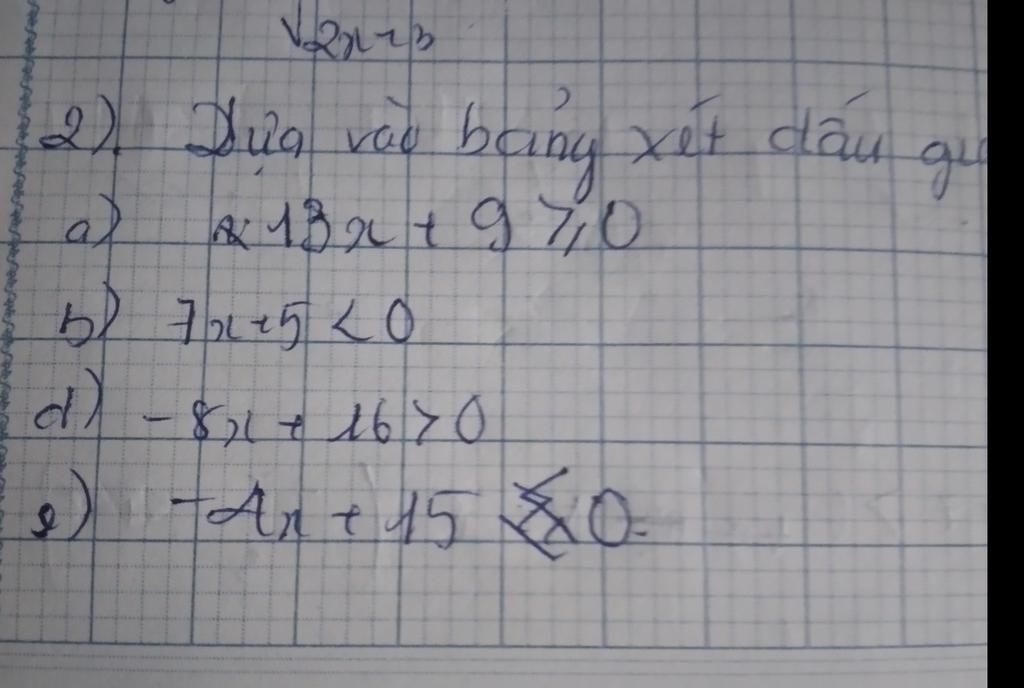 √2x-3
2) Dựa vào bảng xét dấu
a) 13x + 9 ≥ 0
b) 7x+5 < 0
d) -8x + 16 > 0
e) -4x + 15 0